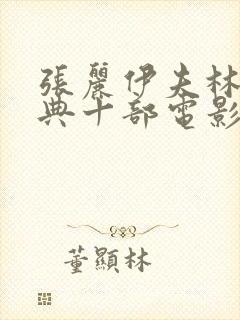 張麗伊夫林
典十部電影
董顯林